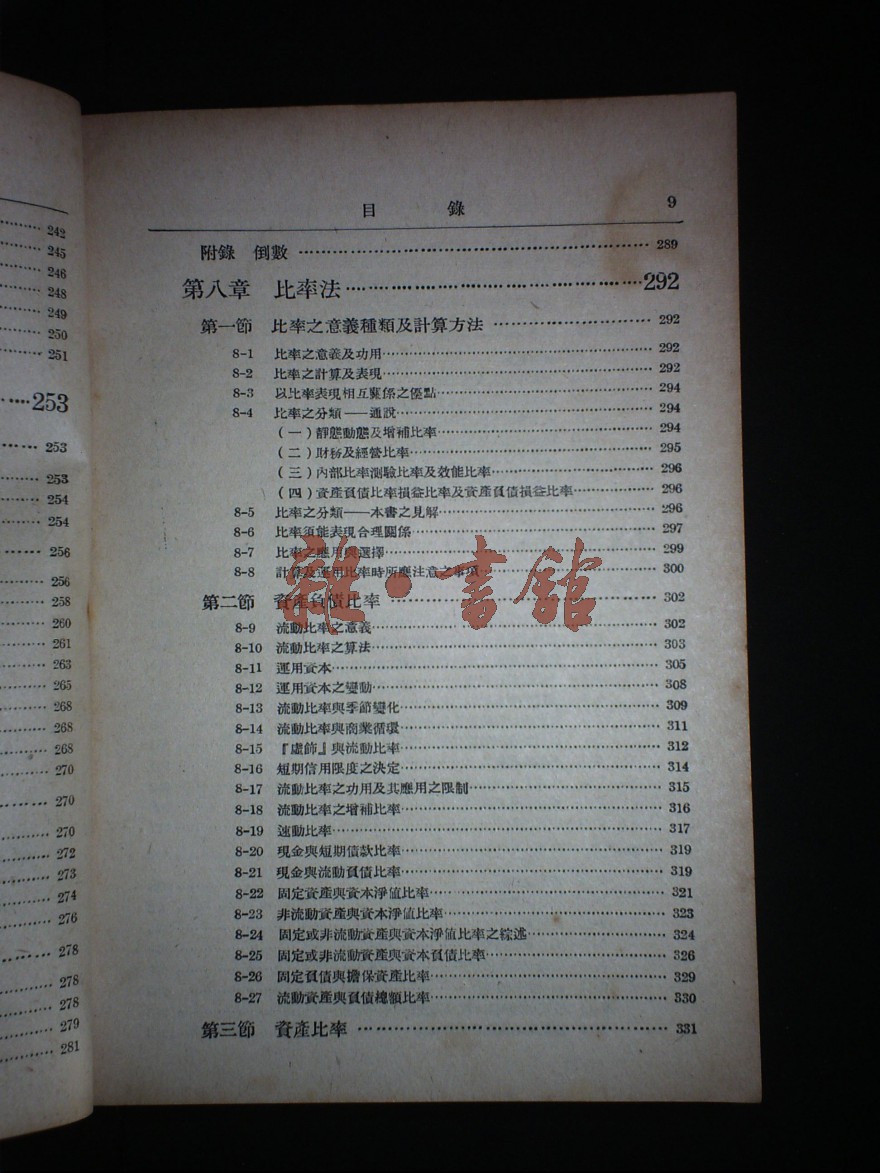 242
245
246
248
249
250
251
253
253
253
254
254
256
256
258
260
261
263
265
268
268
268
270
270
270
272
273
274
276
278
278
278
279
281
目 錄 9
附錄 倒數 289
第八章 比率法 292
第一節 比率之意義種類及計算方法 292
8-1 比率之意義及功用 292
8-2 比率之計算及表現 292
8-3 以比率表現相互關係之優點 294
8-4 比率之分類——通說 294
(一)靜態動態及增補比率 294
(二)財務及經營比率 295
(三)內部比率測驗比率及效能比率 296
(四)資產負債比率損益比率及資產負債損益比率 296
8-5 比率之分類——本書之見解 296
8-6 比率須能表現合理關係 297
8-7 比率之應用與選擇 299
8-8 計算及運用比率時所應注意之事項 300
第二節 資產負債比率 302
8-9 流動比率之意義 302
8-10 流動比率之算法 303
8-11 運用資本 305
8-12 運用資本之變動 308
8-13 流動比率與季節變化 309
8-14 流動比率與商業循環 311
8-15 『虛飾』與流動比率 312
8-16 短期信用限度之決定 314
8-17 流動比率之功用及其應用之限制 315
8-18 流動比率之增補比率 316
8-19 速動比率 317
8-20 現金與短期債款比率 319
8-21 現金與流動負債比率 319
8-22 固定資產與資本淨值比率 321
8-23 非流動資產與資本淨值比率 323
8-24 固定或非流動資產與資本淨值比率之綜述 324
8-25 固定或非流動資產與資本負債比率 326
8-26 固定負債與擔保資產比率 329
8-27 流動資產與負債總額比率 330
第三節 資產比率 331
雜·書館